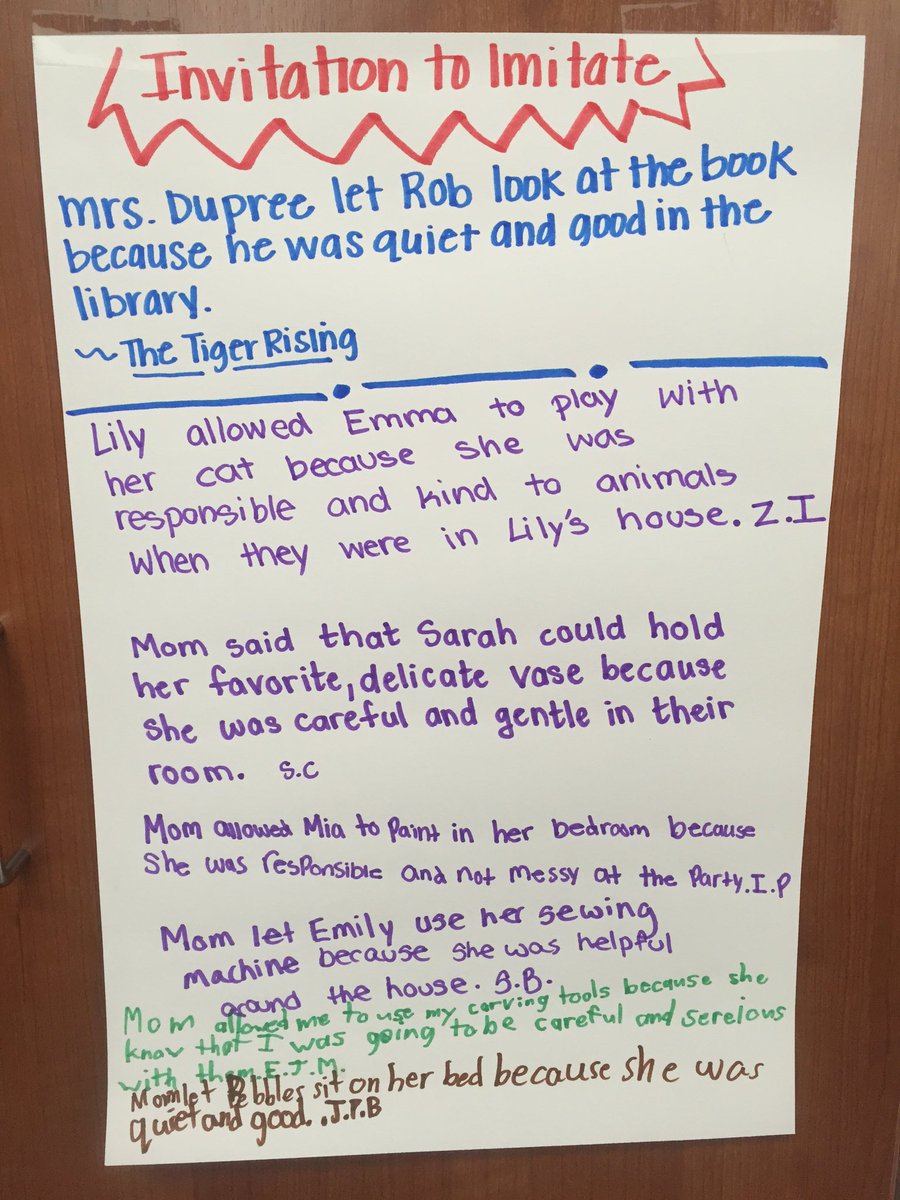 Invitation to Imitate
Mrs. Dupree let Rob look at the book
because he was quiet and good in the
library.
~ The Tiger Rising
Lily allowed Emma to play with
her cat because she was
responsible and kind to animals
when they were in Lily's house. Z.I
Mom said that Sarah could hold
her favorite, delicate vase because
she was careful and gentle in their
room. S.C
Mom allowed Mia to paint in her bedroom because
She was responsible and not messy at the Party. I.P
Mom let Emily use her sewing
machine because she was helpful
around the house. S.B.
Mom allowed me to use my carving tools because she
know that I was going to be careful and sereious
with them E.J.M.
Mom let Pebbles sit on her bed because she was
quiet and good. .J.P.B